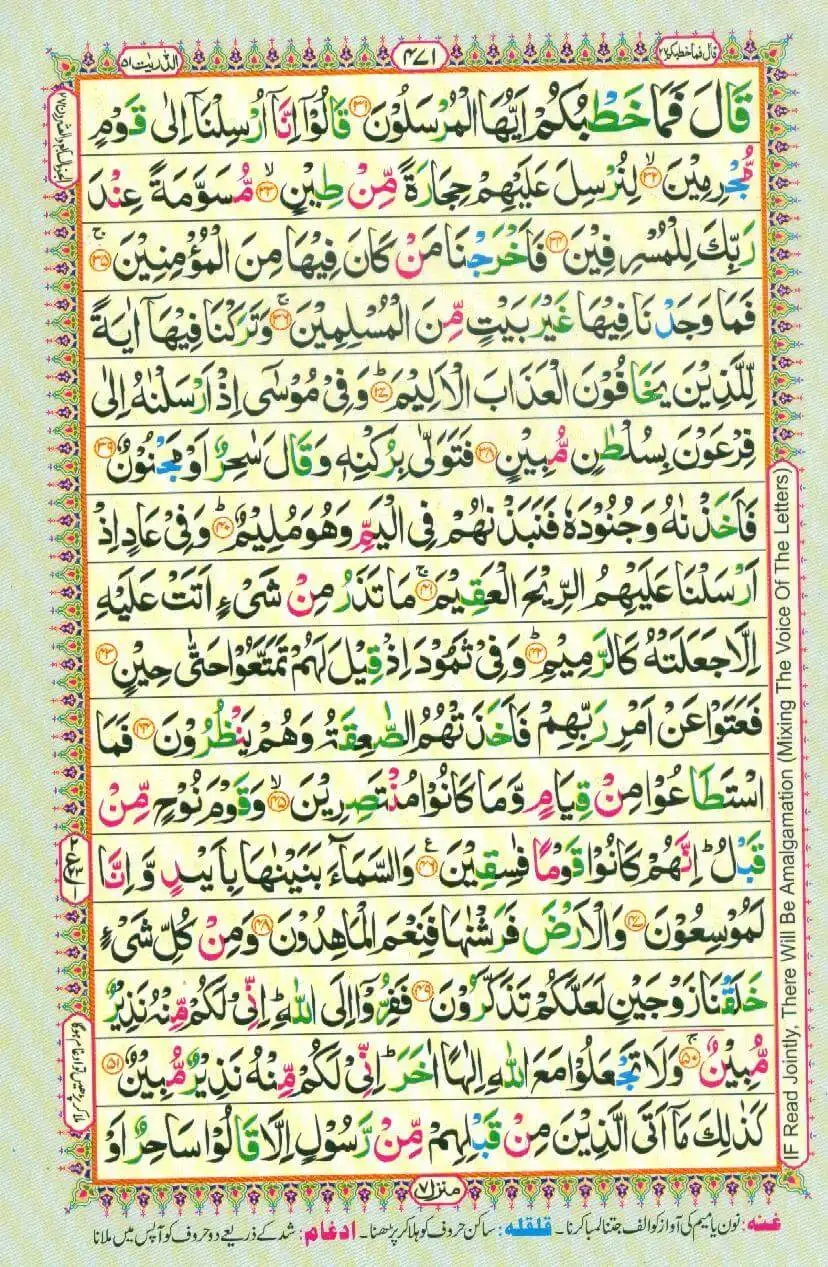 قال فما خطبكم ٢٧
٤٧١
الذّٰريٰت ٥١
قَالَ فَمَا خَطۡبُكُمۡ اَيُّهَا الۡمُرۡسَلُوۡنَ ﴿۳۱﴾ قَالُوۡۤا اِنَّاۤ اُرۡسِلۡنَاۤ اِلٰى قَوۡمٍ
مُّجۡرِمِيۡنَۙ‏ ﴿۳۲﴾ لِنُرۡسِلَ عَلَيۡهِمۡ حِجَارَةً مِّنۡ طِيۡنٍۙ‏ ﴿۳۳﴾ مُّسَوَّمَةً عِنۡدَ
رَبِّكَ لِلۡمُسۡرِفِيۡنَ‏ ﴿۳۴﴾ فَاَخۡرَجۡنَا مَنۡ كَانَ فِيۡهَا مِنَ الۡمُؤۡمِنِيۡنَۚ‏ ﴿۳۵﴾
فَمَا وَجَدۡنَا فِيۡهَا غَيۡرَ بَيۡتٍ مِّنَ الۡمُسۡلِمِيۡنَۚ‏ ﴿۳۶﴾ وَتَرَكۡنَا فِيۡهَاۤ اٰيَةً
لِّلَّذِيۡنَ يَخَافُوۡنَ الۡعَذَابَ الۡاَلِيۡمَؕ‏ ﴿۳۷﴾ وَفِىۡ مُوۡسٰۤى اِذۡ اَرۡسَلۡنٰهُ اِلٰى
فِرۡعَوۡنَ بِسُلۡطٰنٍ مُّبِيۡنٍ‏ ﴿۳۸﴾ فَتَوَلّٰى بِرُكۡنِهٖ وَقَالَ سٰحِرٌ اَوۡ مَجۡنُوۡنٌ‏ ﴿۳۹﴾
فَاَخَذۡنٰهُ وَجُنُوۡدَهٗ فَنَبَذۡنٰهُمۡ فِى الۡيَمِّ وَهُوَ مُلِيۡمٌؕ‏ ﴿۴۰﴾ وَفِىۡ عَادٍ اِذۡ
اَرۡسَلۡنَا عَلَيۡهِمُ الرِّيۡحَ الۡعَقِيۡمَۚ‏ ﴿۴۱﴾ مَا تَذَرُ مِنۡ شَىۡءٍ اَتَتۡ عَلَيۡهِ
اِلَّا جَعَلَتۡهُ كَالرَّمِيۡمِؕ‏ ﴿۴۲﴾ وَفِىۡ ثَمُوۡدَ اِذۡ قِيۡلَ لَهُمۡ تَمَتَّعُوۡا حَتّٰى حِيۡنٍ‏ ﴿۴۳﴾
فَعَتَوۡا عَنۡ اَمۡرِ رَبِّهِمۡ فَاَخَذَتۡهُمُ الصّٰعِقَةُ وَهُمۡ يَنۡظُرُوۡنَ‏ ﴿۴۴﴾ فَمَا
اسۡتَطَاعُوۡا مِنۡ قِيَامٍ وَّمَا كَانُوۡا مُنۡتَصِرِيۡنَۙ‏ ﴿۴۵﴾ وَقَوۡمَ نُوۡحٍ مِّنۡ
قَبۡلُؕ اِنَّهُمۡ كَانُوۡا قَوۡمًا فٰسِقِيۡنَ‏ ﴿۴۶﴾ وَالسَّمَآءَ بَنَيۡنٰهَا بِاَيۡٮدٍ وَّاِنَّا
لَمُوۡسِعُوۡنَ‏ ﴿۴۷﴾ وَالۡاَرۡضَ فَرَشۡنٰهَا فَنِعۡمَ الۡمٰهِدُوۡنَ‏ ﴿۴۸﴾ وَمِنۡ كُلِّ شَىۡءٍ
خَلَقۡنَا زَوۡجَيۡنِ لَعَلَّكُمۡ تَذَكَّرُوۡنَ‏ ﴿۴۹﴾ فَفِرُّوۡۤا اِلَى اللّٰهِؕ اِنِّىۡ لَكُمۡ مِّنۡهُ نَذِيۡرٌ
مُّبِيۡنٌۚ‏ ﴿۵۰﴾ وَلَا تَجۡعَلُوۡا مَعَ اللّٰهِ اِلٰهًا اٰخَرَؕ اِنِّىۡ لَكُمۡ مِّنۡهُ نَذِيۡرٌ مُّبِيۡنٌۚ‏ ﴿۵۱﴾
كَذٰلِكَ مَاۤ اَتَى الَّذِيۡنَ مِنۡ قَبۡلِهِمۡ مِّنۡ رَّسُوۡلٍ اِلَّا قَالُوۡا سَاحِرٌ اَوۡ
IF Read Jointly, There Will Be Amalgamation (Mixing The Voice Of The Letters)
منزل ٧
غنه: نون یا میم کی آواز کو الف جتنا لمبا کرنا۔ قلقله: ساکن حروف کو ہلا کر پڑھنا۔ ادغام: شد کے ذریعے دو حروف کو آپس میں ملانا